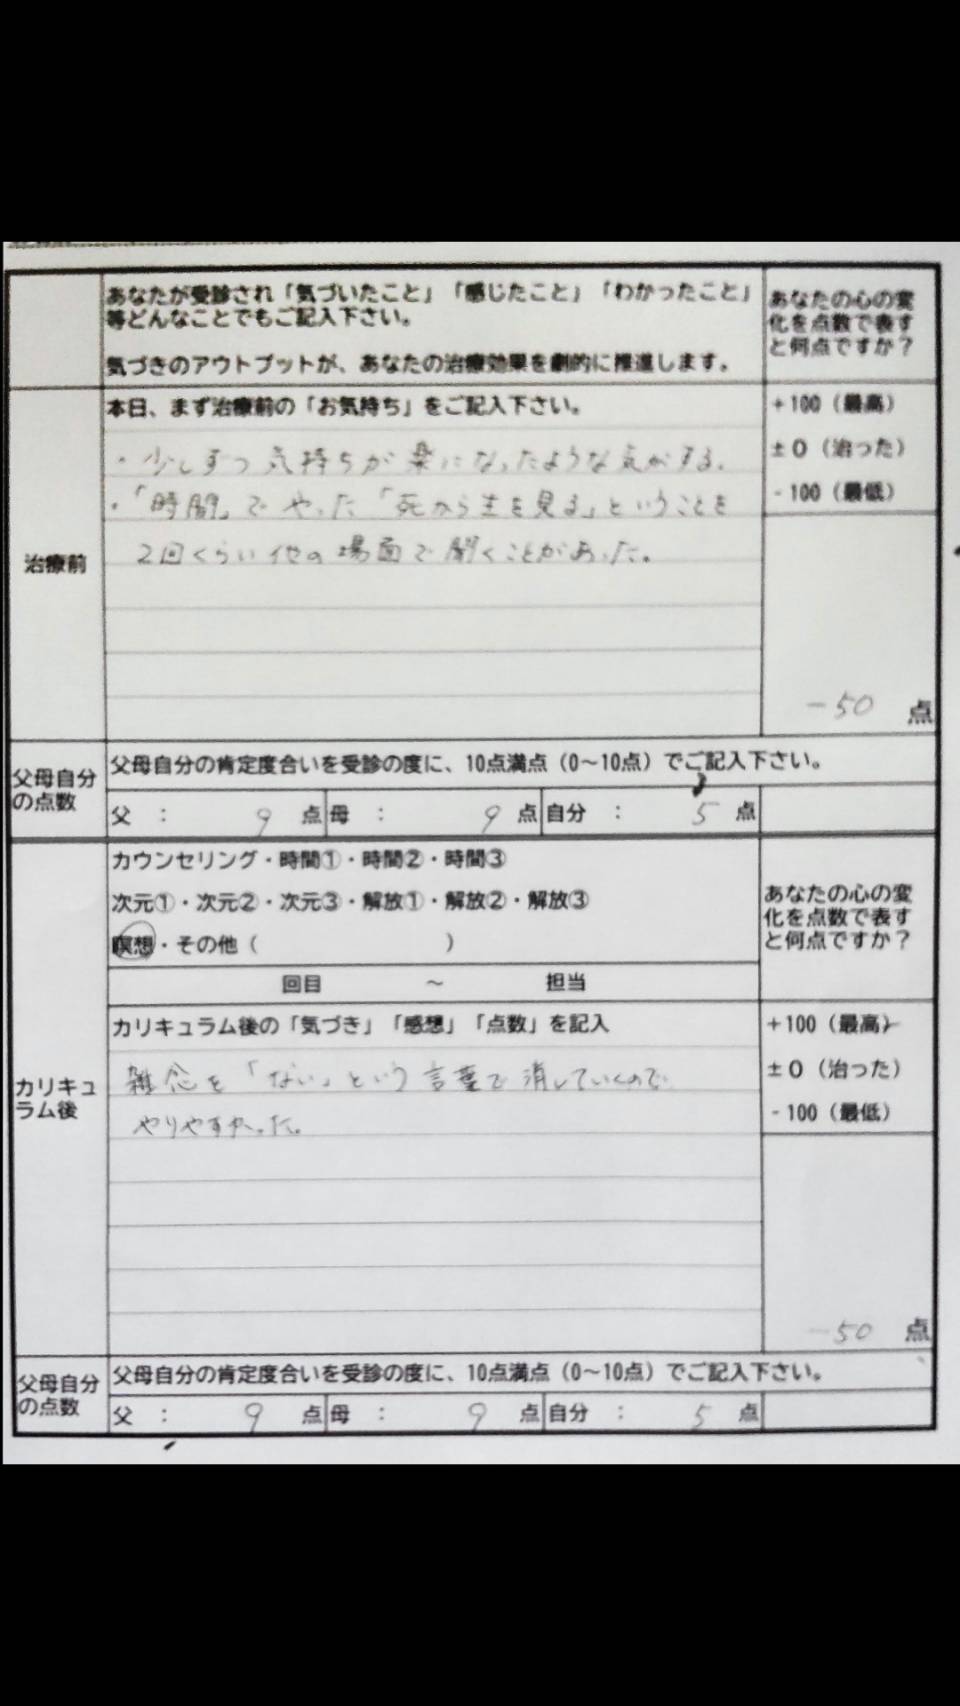 あなたが受診され「気づいたこと」「感じたこと」「わかったこと」
等どんなことでもご記入下さい。
気づきのアウトプットが、あなたの治療効果を劇的に推進します。
あなたの心の変
化を点数で表す
と何点ですか？
治療前
本日、まず治療前の「お気持ち」をご記入下さい。
・少しずつ気持ちが楽になったような気がする。
・「時間」でやった「死から生を見る」ということを
2回くらい他の場面で聞くことがあった。
+100（最高）
±0（治った）
-100（最低）
-50 点
父母自分
の点数
父母自分の肯定度合いを受診の度に、10点満点（0～10点）でご記入下さい。
父 ： 9 点 母 ： 9 点 自分 ： 5 点
カリキュ
ラム後
カウンセリング・時間①・時間②・時間③
次元①・次元②・次元③・解放①・解放②・解放③
瞑想・その他（ ）
回目 ～ 担当
あなたの心の変
化を点数で表す
と何点ですか？
カリキュラム後の「気づき」「感想」「点数」を記入
雑念を「ない」という言葉で消していくので
やりやすかった。
+100（最高）
±0（治った）
-100（最低）
-50 点
父母自分
の点数
父母自分の肯定度合いを受診の度に、10点満点（0～10点）でご記入下さい。
父 ： 9 点 母 ： 9 点 自分 ： 5 点